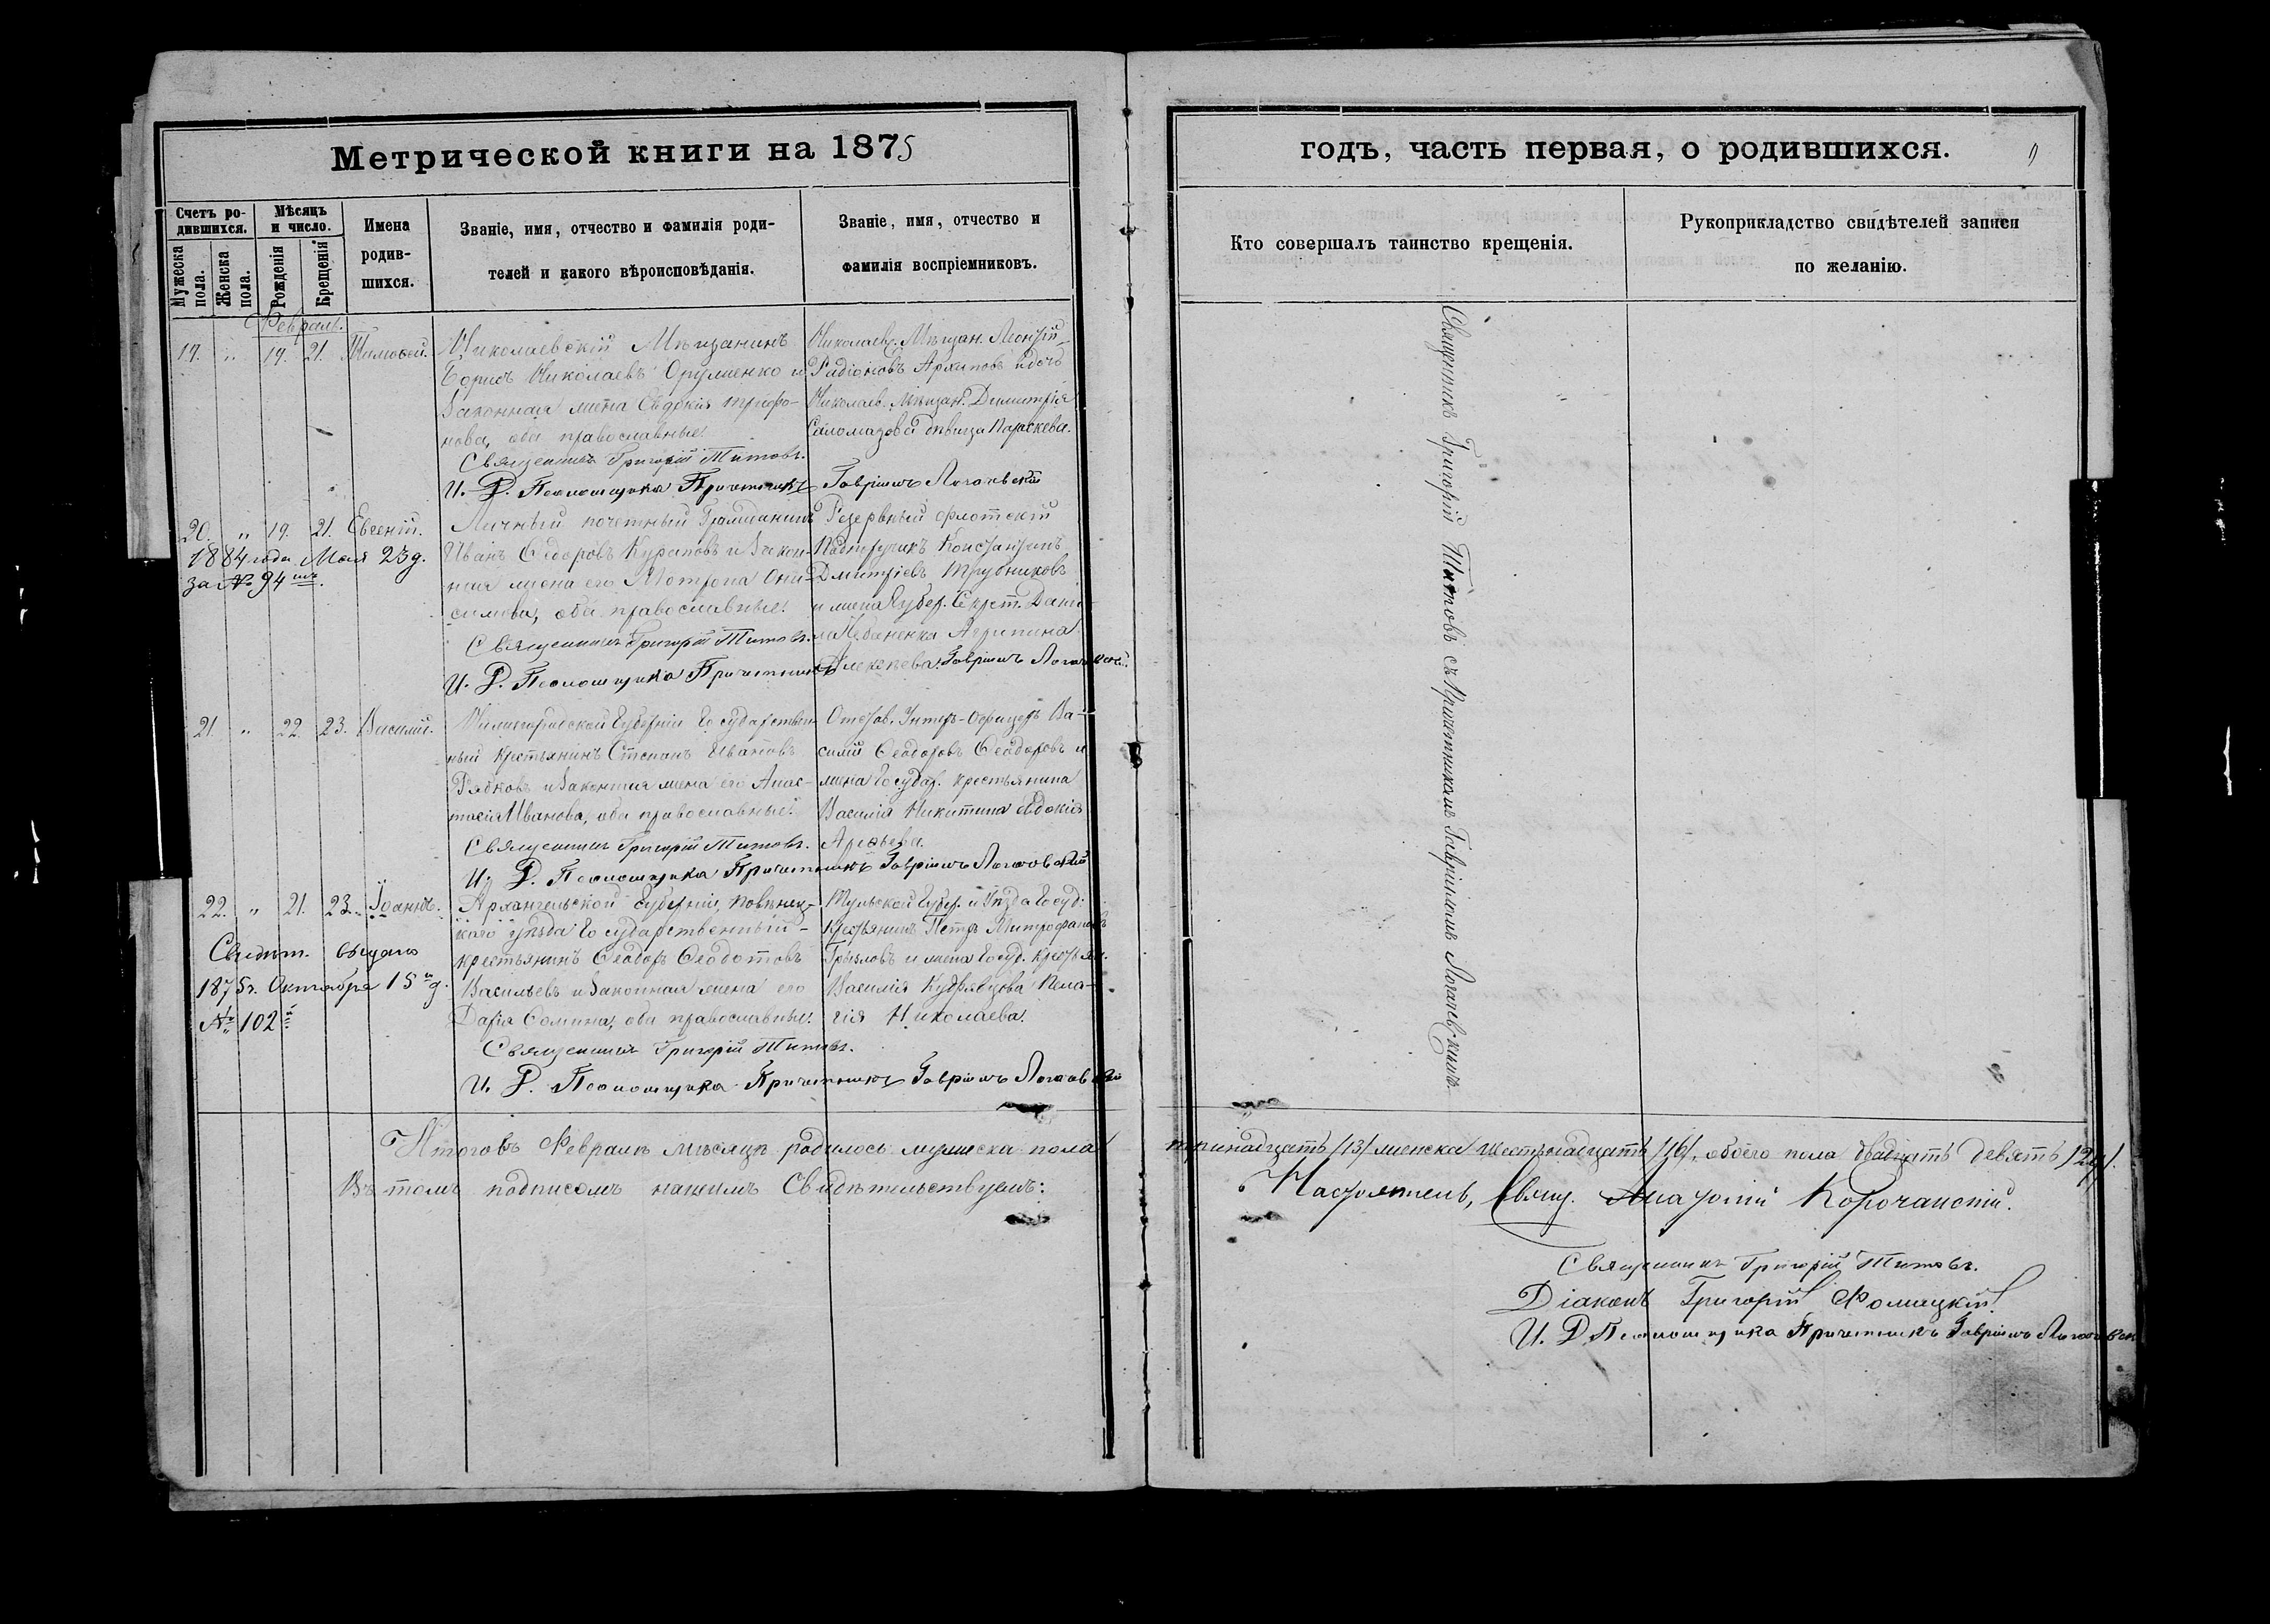 Метрической книги на 1875
Счетъ ро-
дившихся.
Мѣсяцъ
и число.
Мужеска
пола.
Женска
пола.
Рожденія
Крещенія
Имена
родив-
шихся.
Званіе, имя, отчество и фамилія роди-
телей и какого вѣроисповѣданія.
Званіе, имя, отчество и
фамилія воспріемниковъ.
Февраль.
19. „ 19. 21. Тимоѳей.
Николаевскій Мѣщанинъ
Борисъ Николаевъ и
законная жена Евдокія Трифо-
нова, оба православные.
Священникъ Григорій Титовъ.
И. Д. Псаломщика Причетникъ Гавріилъ
Николаев. Мѣщан. Леонтій
Радіоновъ Архиповъ и дочь
Николаев. Мѣщан. Димитрія
Саломазова дѣвица Параскева.
20. „ 19. 21. Евгеній.
1884 года Мая 23 д.
за № 94
Личный почетный Гражданинъ
Иванъ Ѳеодоровъ Курановъ и закон-
ная жена его Мотрона Они-
симова, оба православные.
Священникъ Григорій Титовъ.
И. Д. Псаломщика Причетникъ Гавріилъ
Резервный флотскій
Подпоручикъ Константинъ
Дмитріевъ Трубниковъ
и жена Губер. Секрет. Дани-
ла Агрипина
Алексѣева.
21. „ 22. 23. Василій.
Губерніи Государствен-
ный крестьянинъ Степанъ Ивановъ
Рядковъ и законная жена его Анас-
тасія Иванова, оба православные.
Священникъ Григорій Титовъ.
И. Д. Псаломщика Причетникъ Гавріилъ
Отстав. Унтеръ-Офицеръ Ва-
силій Ѳеодоровъ Ѳеодоровъ и
жена Государ. крестьянина
Василія Никитина Евдокія
22. „ 21. 23. Іоаннъ.
Свидѣт. выдано
1875 г. Октября 15 д.
№ 102
Архангельской Губерніи, Повѣнец-
каго уѣзда Государственный
крестьянинъ Ѳеодоръ Ѳеодотовъ
Васильевъ и законная жена его
Дарія Ѳомина, оба православные.
Священникъ Григорій Титовъ.
И. Д. Псаломщика Причетникъ Гавріилъ
Тульской Губер. и Уѣзда Госуд.
крестьянинъ Петръ Митрофановъ
и жена Госуд. крестьян.
Василія Кудрявцова Пела-
гія Николаева.
Итого въ Февралѣ мѣсяцѣ родилось: мужеска пола
Въ томъ подписомъ нашимъ Свидѣтельствуемъ:
годъ, часть первая, о родившихся.
9
Кто совершалъ таинство крещенія.
Рукоприкладство свидѣтелей записи
по желанію.
Священникъ Григорій Титовъ съ Причетникомъ Гавріиломъ
тринадцать /13/ женска шестьнадцать /16/, обоего пола двадцать девять /29/.
Настоятель, Свящ. Анатолій Корочанскій.
Священникъ Григорій Титовъ.
Діаконъ Григорій Фомицкій.
И. Д. Псаломщика Причетникъ Гавріилъ